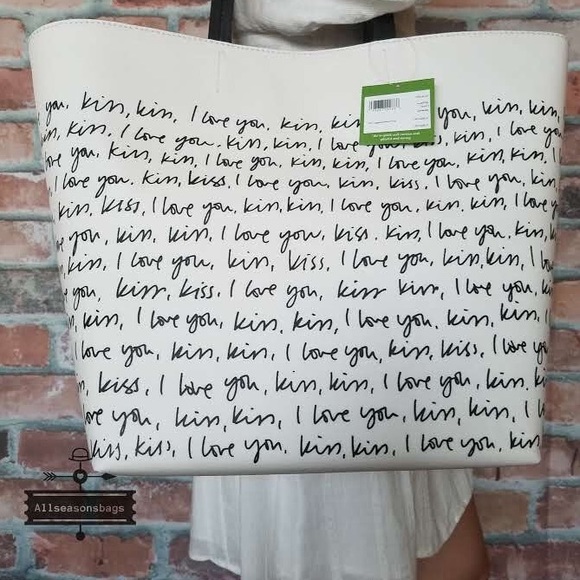 you. kiss, kiss, I love you. kiss, kiss you, kiss, kiss,
kiss, kiss, I love you. kiss, kiss, I love kiss, kiss, I love you
love you, kiss, kiss, I love you. kiss, kiss, I love you, kiss, kiss, I
I love you. kiss, kiss, I love you, kiss, kiss. I love you, kiss,
kiss, kiss, I love you. kiss, kiss, I love you. kiss, kiss, I love
love you, kiss, kiss, I love you, kiss. kiss, I love you, kiss,
kiss, I love you, kiss, kiss, I love you, kiss, kiss, I love
love you, kiss, kiss. I love you, kiss kiss, I love you,
kiss, kiss, I love you, kiss, kiss, I love you, kiss, kiss, I
love you, kiss, kiss, I love you, kiss, kiss, I love you
kiss, I love you, kiss, kiss, I love you, kiss, kiss
love you, kiss, kiss, I love you, kiss, kiss, I
kiss, kiss, I love you. kiss, kiss, I love you, kiss
Allseasonsbags